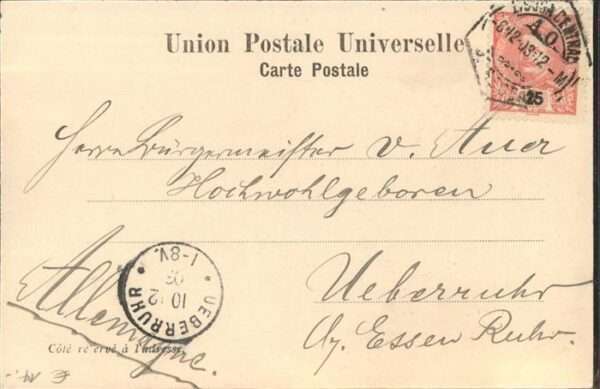 LISBOA CENTRAL
A.O.
25
Union Postale Universelle
Carte Postale
Herrn Bürgermeister v. Auer
Hochwohlgeboren
Ueberruhr
Essen Ruhr.
Allemagne.
UEBERRUHR
10 12
03
1-8V.
Côté réservé à l'adresse.